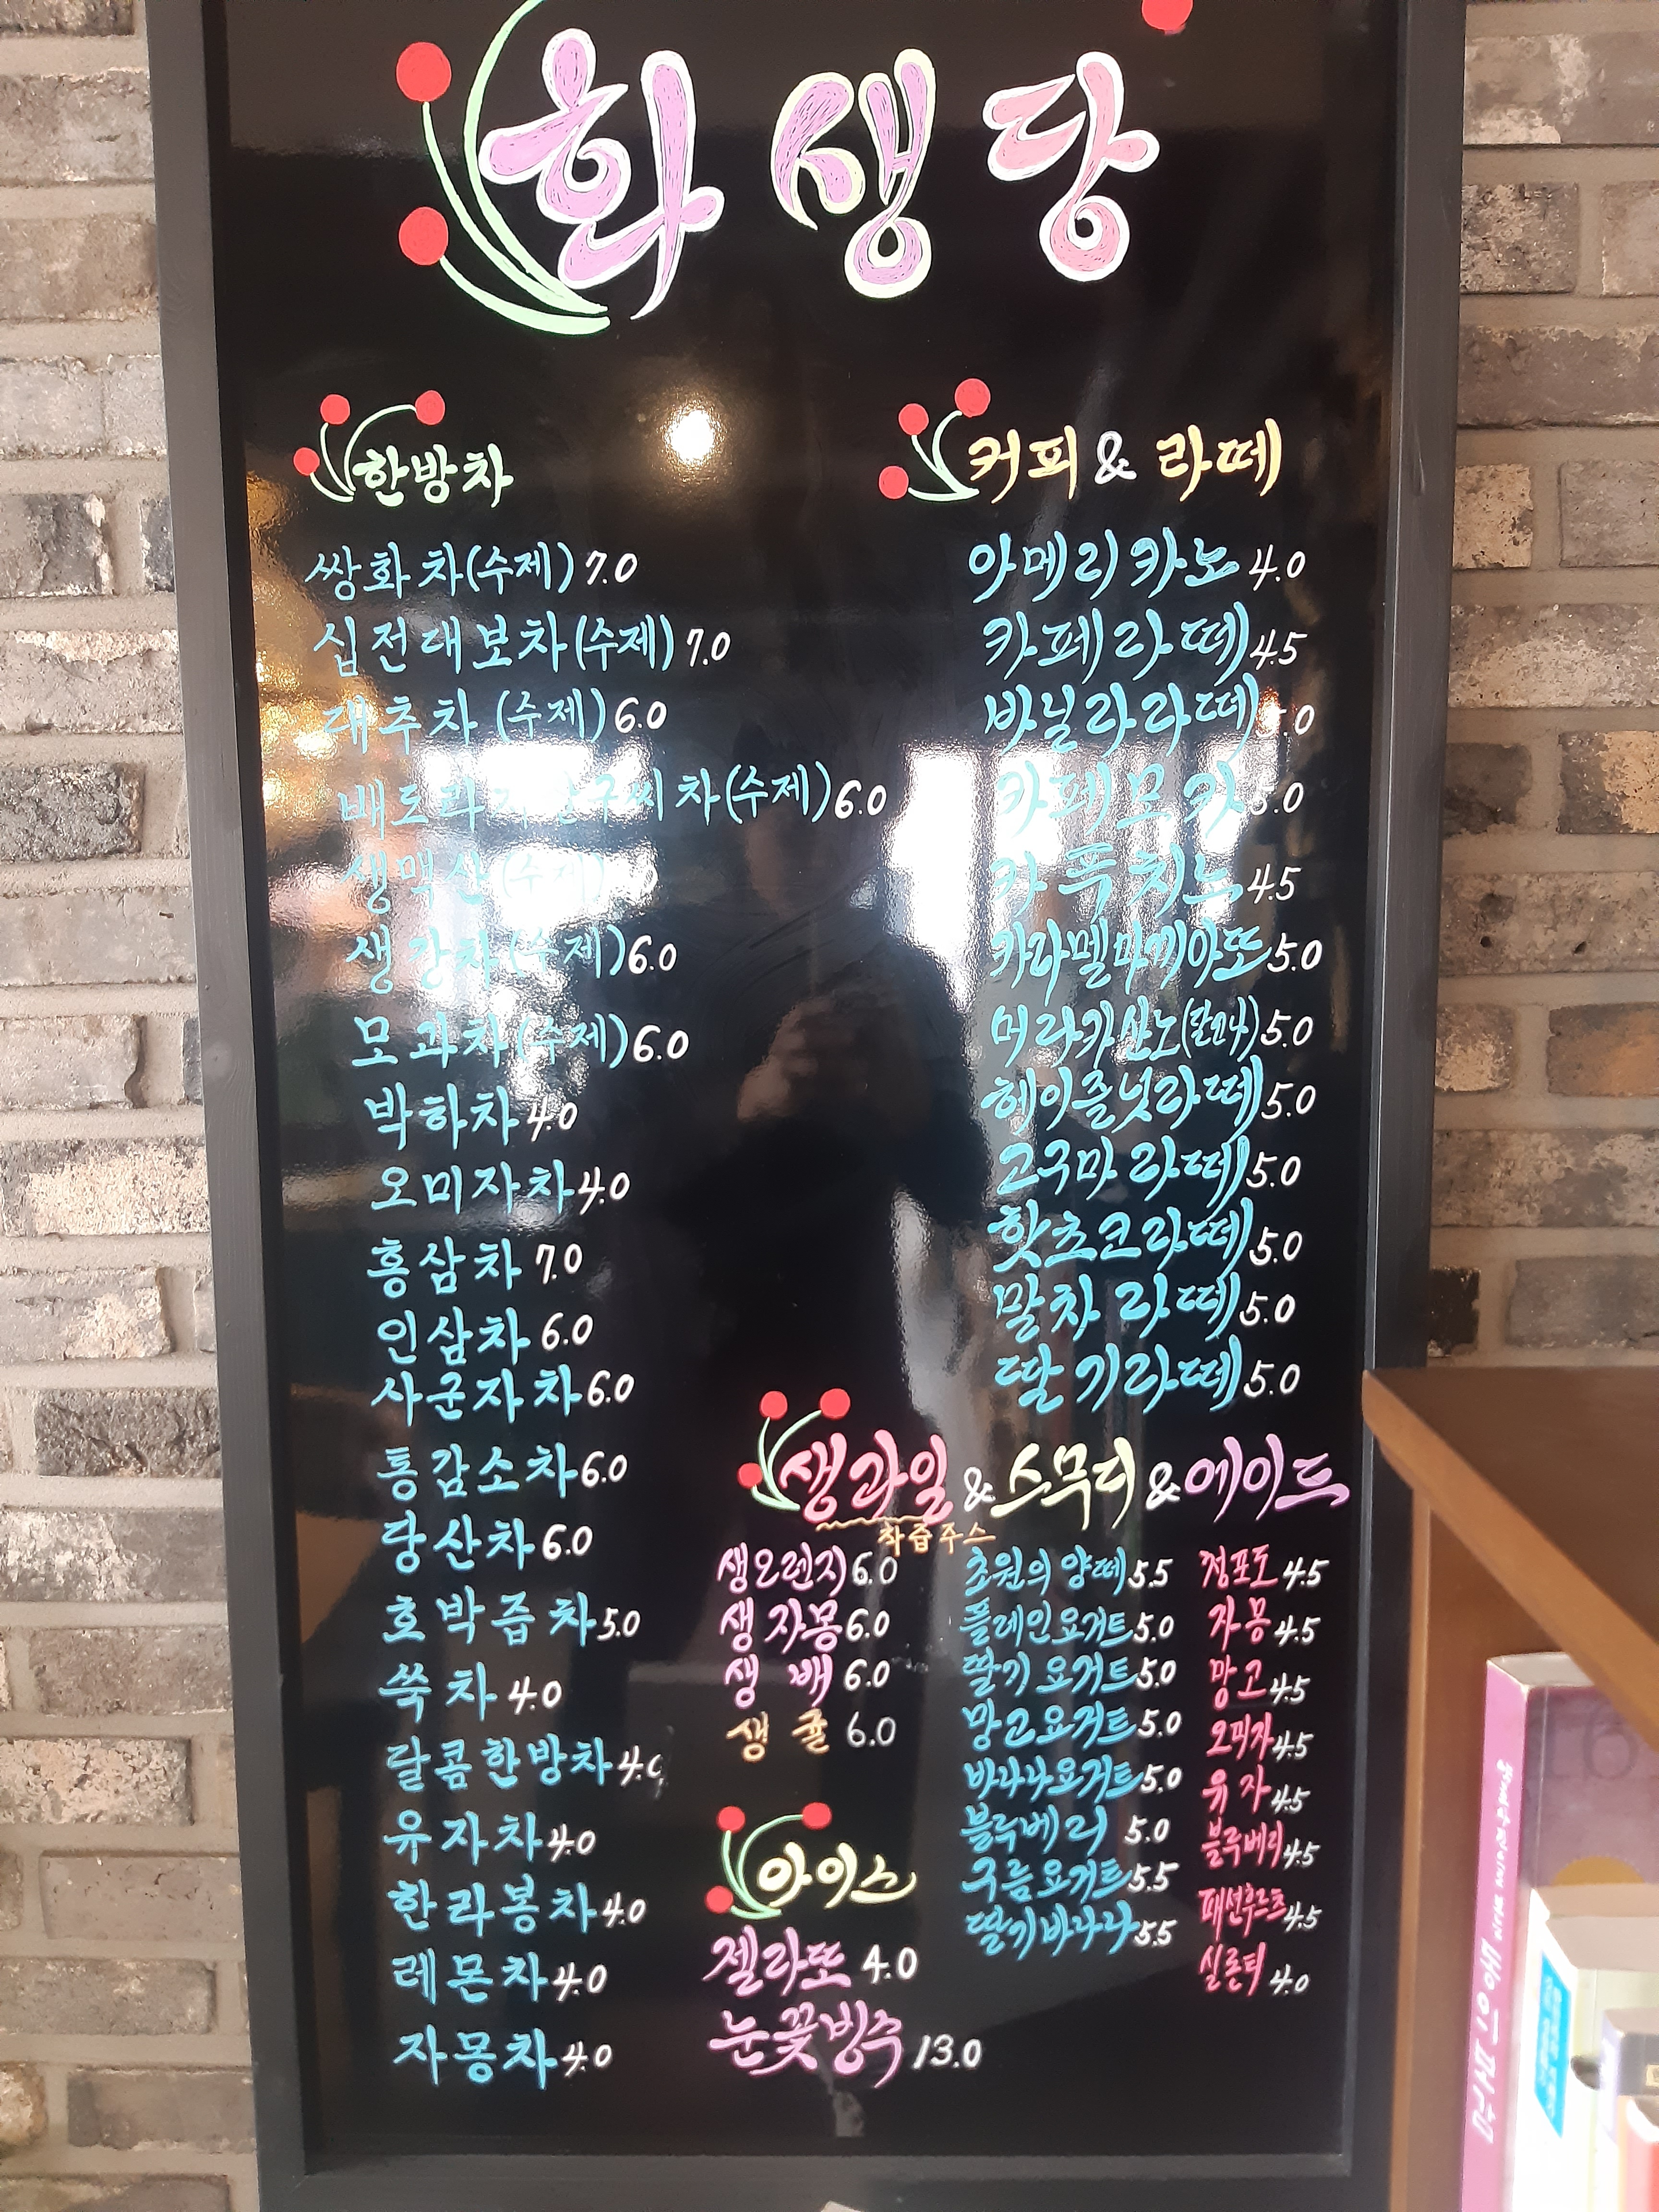 화생당
한방차
쌍화차(수제) 7.0
십전대보차(수제) 7.0
대추차 (수제) 6.0
배도라지 구씨차(수제) 6.0
생맥산(수제)
생강차(수제) 6.0
모과차(수제) 6.0
박하차 4.0
오미자차 4.0
홍삼차 7.0
인삼차 6.0
사군자차 6.0
통감소차 6.0
당산차 6.0
호박즙차 5.0
쑥차 4.0
달콤한방차 4.0
유자차 4.0
한라봉차 4.0
레몬차 4.0
자몽차 4.0
커피 & 라떼
아메리카노 4.0
카페라떼 4.5
바닐라라떼
카페모카 5.0
카푸치노 4.5
카라멜마끼아또 5.0
머라카산노(달고나) 5.0
헤이즐넛라떼 5.0
고구마라떼 5.0
핫초코라떼 5.0
말차라떼 5.0
딸기라떼 5.0
생과일 & 스무디 & 에이드
착즙주스
생오렌지 6.0
생자몽 6.0
생 배 6.0
생 귤 6.0
초원의 양떼 5.5
플레인요거트 5.0
딸기 요거트 5.0
망고요거트 5.0
바나나요거트 5.0
블루베리 5.0
구름요거트 5.5
딸기바나나 5.5
청포도 4.5
자몽 4.5
망고 4.5
오미자 4.5
유자 4.5
블루베리 4.5
패션후르츠 4.5
실론티 4.0
아이스
젤라또 4.0
눈꽃빙수 13.0